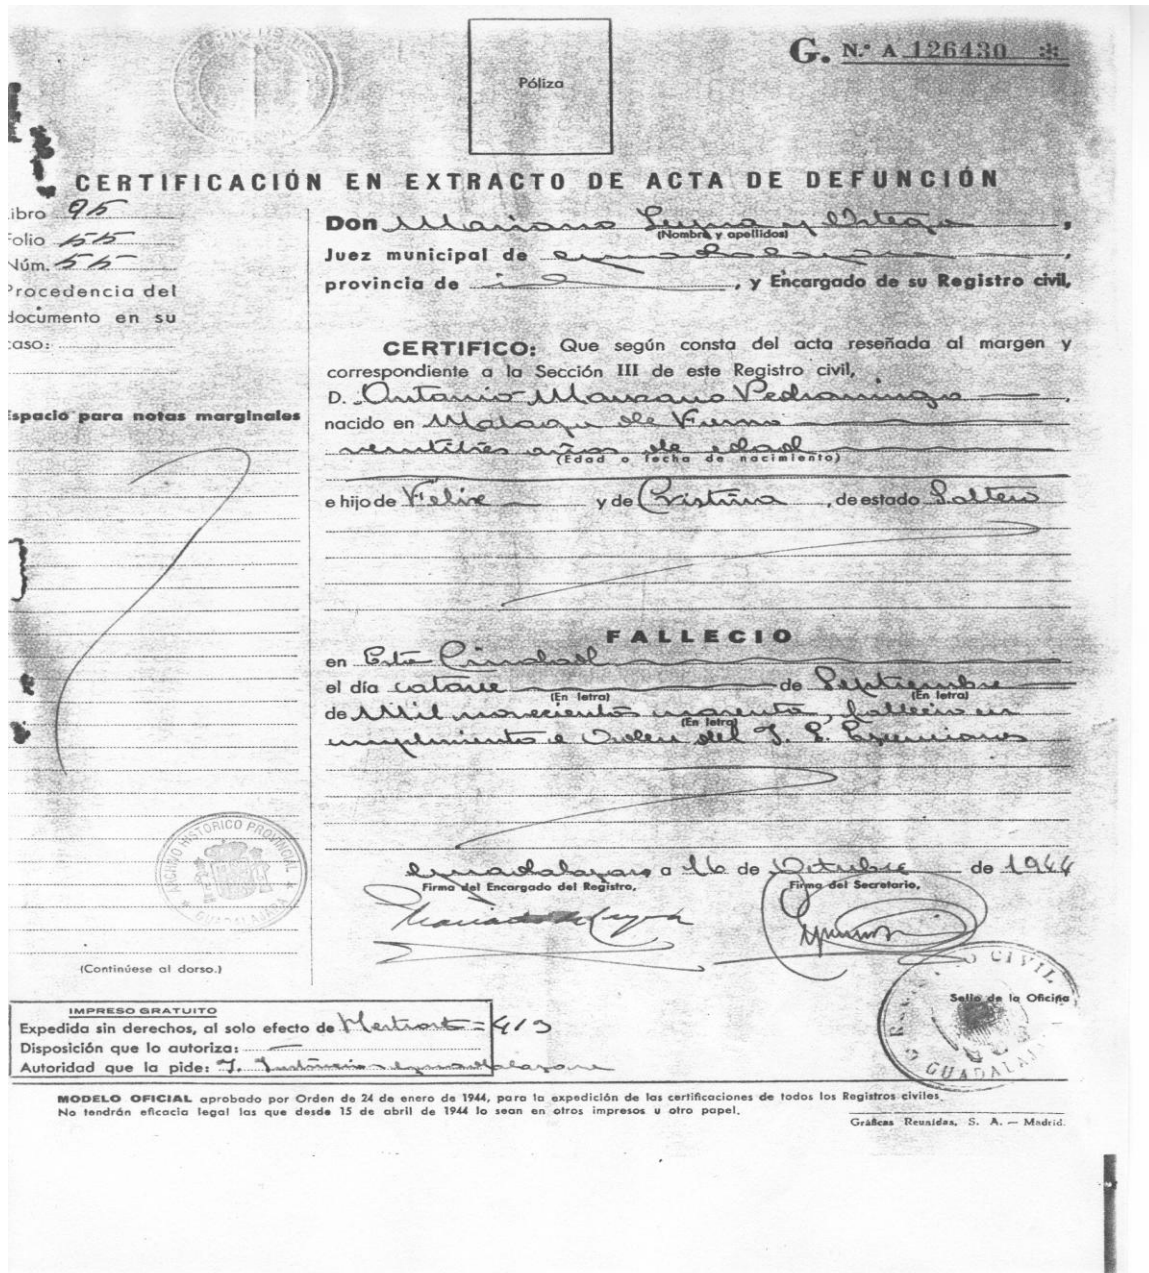 Póliza
G. N.º A 126430
CERTIFICACIÓN EN EXTRACTO DE ACTA DE DEFUNCIÓN
ibro 95
olio 55
Núm. 55
Procedencia del
documento en su
caso:
Espacio para notas marginales
Don Mariano y Ortega,
(Nombre y apellidos)
Juez municipal de Guadalajara,
provincia de id, y Encargado de su Registro civil,
CERTIFICO: Que según consta del acta reseñada al margen y
correspondiente a la Sección III de este Registro civil,
D. Antonio Manzano Pedromingo,
nacido en Malaga del Fresno
veintitrés años de edad
(Edad o fecha de nacimiento)
e hijo de Felix y de Cristina, de estado Soltero
FALLECIO
en Esta Ciudad
el día catorce de Septiembre
(En letra) (En letra)
de Mil novecientos cuarenta, fallecio en
(En letra)
cumplimiento a Orden del J. E. Ejecuciones
Guadalajara a 16 de Octubre de 1944
Firma del Encargado del Registro, Firma del Secretario,
ARCHIVO HISTORICO PROVINCIAL
GUADALAJARA
(Continúese al dorso.)
REGISTRO CIVIL
Sello de la Oficina
GUADALAJARA
IMPRESO GRATUITO
Expedida sin derechos, al solo efecto de
Disposición que lo autoriza:
Autoridad que la pide: J. Guadalajara
MODELO OFICIAL aprobado por Orden de 24 de enero de 1944, para la expedición de las certificaciones de todos los Registros civiles.
No tendrán eficacia legal las que desde 15 de abril de 1944 lo sean en otros impresos u otro papel.
Gráficas Reunidas, S. A. — Madrid.